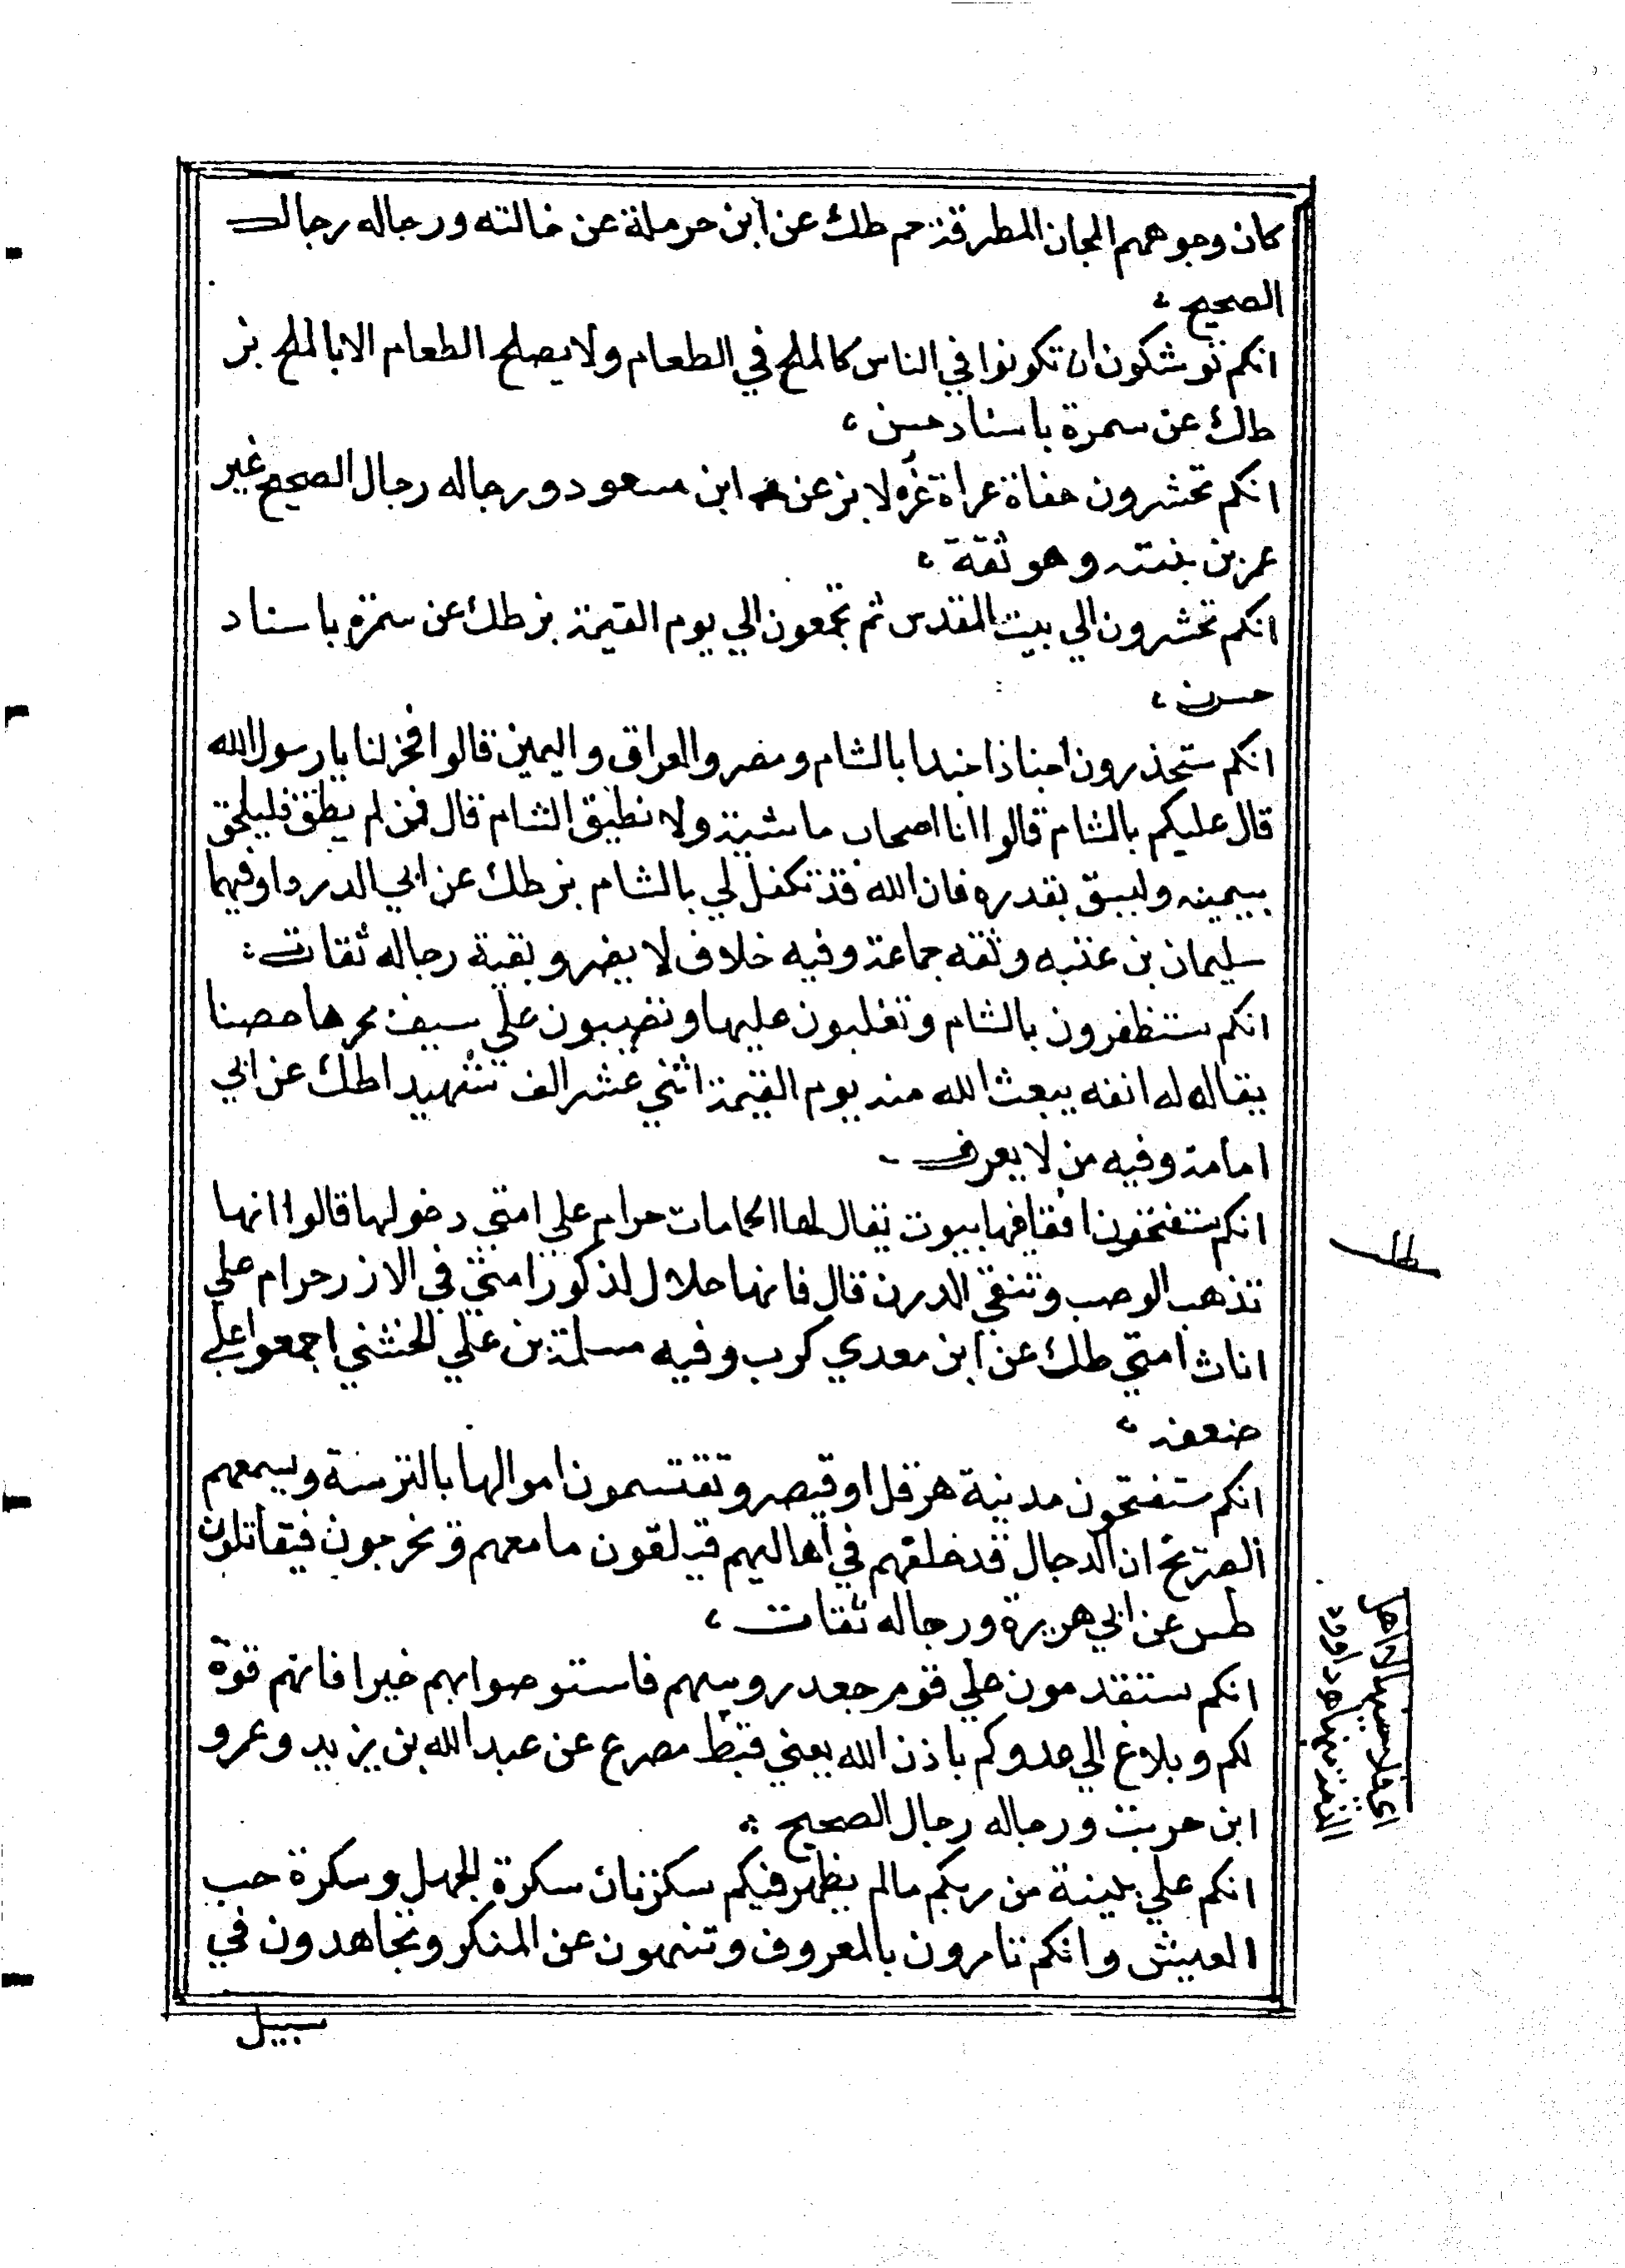 كان وجوههم المجان المطرقة حم طك عن ابن حرملة عن خالته ورجاله رجال
الصحيح
انكم توشكون ان تكونوا في الناس كالملح في الطعام ولا يصلح الطعام الا بالملح بز
طك عن سمرة باسناد حسن
انكم تحشرون حفاة عراة غرلا بز عن ابن مسعود ورجاله رجال الصحيح غير
عمر بن بنته وهو ثقة
انكم تحشرون الي بيت المقدس ثم تجمعون الي يوم القيمة بز طك عن سمرة باسناد
حسن
انكم ستجذرون اجنادا جندا بالشام ومصر والعراق واليمن قالوا فخر لنا يا رسول الله
قال عليكم بالشام قالوا انا اصحاب ماشية ولا نطيق الشام قال فمن لم يطق فليلحق
بيمينه وليسق بقدره فان الله قد تكفل لي بالشام بز طك عن ابي الدرداو فيهما
سليمان بن عتبه وثقه جماعة وفيه خلاف لا يضر وبقية رجاله ثقات
انكم ستظفرون بالشام وتغلبون عليها وتصيبون علي سيف بحرها حصنا
يقاله له انفه يبعث الله منه يوم القيمة اثني عشر الف شهيدا طك عن ابي
امامة وفيه من لا يعرف
انكم ستفتحون افقا فيها بيوت يقال لها الحمامات حرام علي امتي دخولها قالوا انها
تذهب الوصب وتنقي الدرن قال فانها حلال لذكور امتي في الازر حرام علي
اناث امتي طك عن ابن معدي كرب وفيه مسلمة بن علي الخشني اجمعوا علي
ضعفه
انكم ستفتحون مدينة هرقل او قيصر وتقتسمون اموالها بالترسة ويسمعهم
الصريخ ان الدجال قد خلفهم في اهاليهم فيلقون ما معهم ويخرجون فيقاتلون
طس عن ابي هريرة ورجاله ثقات
انكم ستقدمون علي قوم جعد روسهم فاستوصوا بهم خيرا فانهم قوة
لكم وبلاغ الي عدوكم باذن الله يعني قبط مصر ع عن عبد الله بن يزيد وعمرو
ابن حريث ورجاله رجال الصحيح
انكم علي بينة من ربكم ما لم يظهر فيكم سكرتان سكرة الجهل وسكرة حب
العيش وانكم تامرون بالمعروف وتنهون عن المنكر وتجاهدون في
سبيل